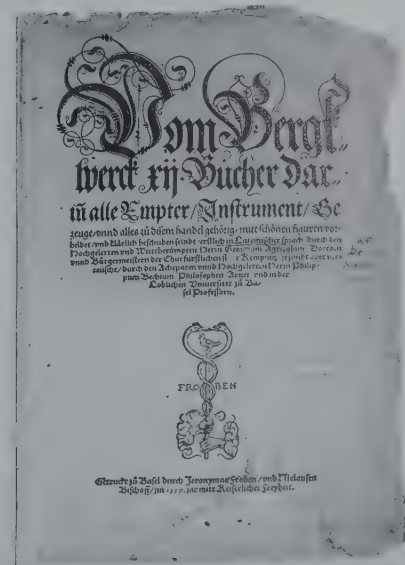 Vom Bergk-
werck xij Bücher Dar-
iñ alle Empter/ Instrument/ Ge
zeuge/ vnnd alles zu disem handel gehörig/ mitt schönen figuren vor-
bildet/ vnd klärlich beschriben seindt erstlich in Lateinischer sprach durch den
Hochgelerten vnd Weittberümpten Herrn Georgium Agricolam Doctorn
vnnd Bürgermeistern der Churfürstlichen Kempnitz jezundt aber
teütscht/ durch den Achtparen vnnd Hochgelerten Herrn Philip-
pum Bechium Philosophen Artzet vnd in der
Loblichen Vniuersitet zů Ba-
sel Professorn.
FRO BEN
Getruckt zů Basel durch Jeronymus Froben/ vnd Niclausen
Bischoff/ im 1557. jar mitt Keiserlicher Freyheit.